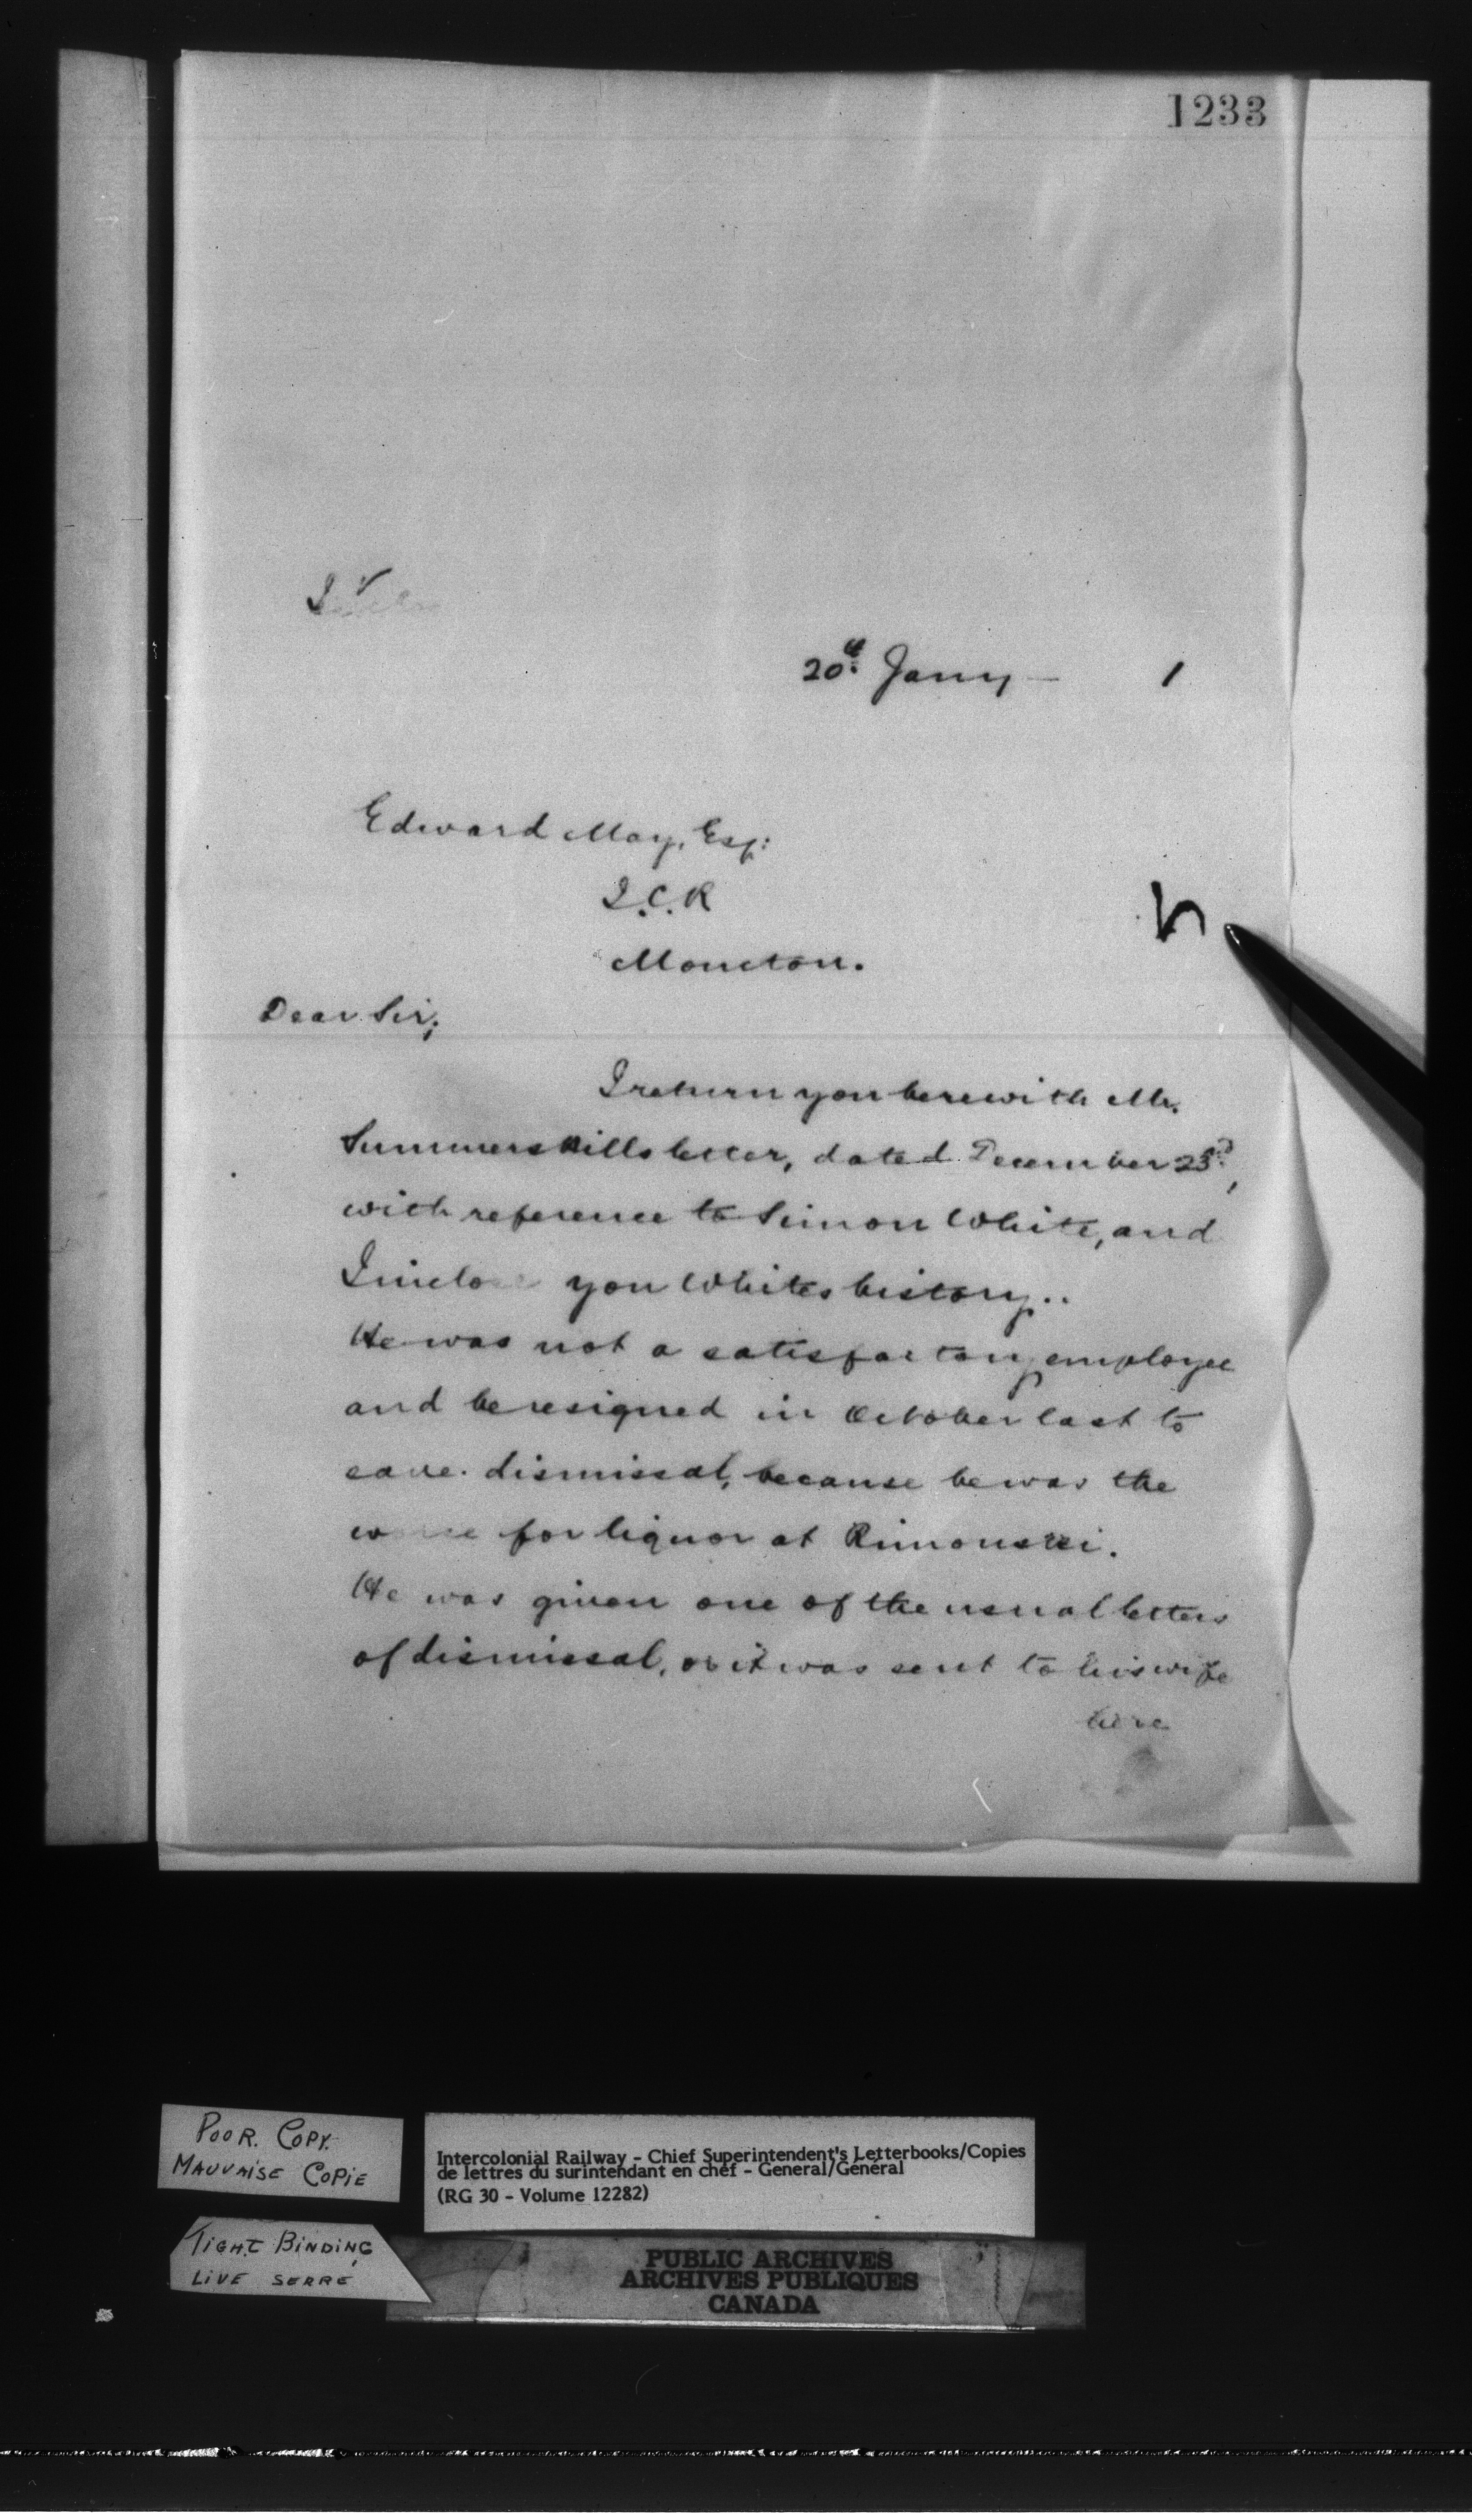 1233
20th Jany — 1
Edward May, Esq:
I.C.R
Moncton.
Dear Sir;
I return you herewith Mr.
Summerskills letter, dated December 23rd,
with reference to Simon White, and
I inclo you Whites history..
He was not a satisfactory employee
and he resigned in October last to
save dismissal, because he was the
worse for liquor at Rimouski.
He was given one of the usual letters
of dismissal, or it was sent to his wife
here
POOR COPY.
MAUVAISE COPIE
Intercolonial Railway - Chief Superintendent's Letterbooks/Copies
de lettres du surintendant en chef - General/Général
(RG 30 - Volume 12282)
TIGHT BINDING
LIVE SERRÉ
PUBLIC ARCHIVES
ARCHIVES PUBLIQUES
CANADA